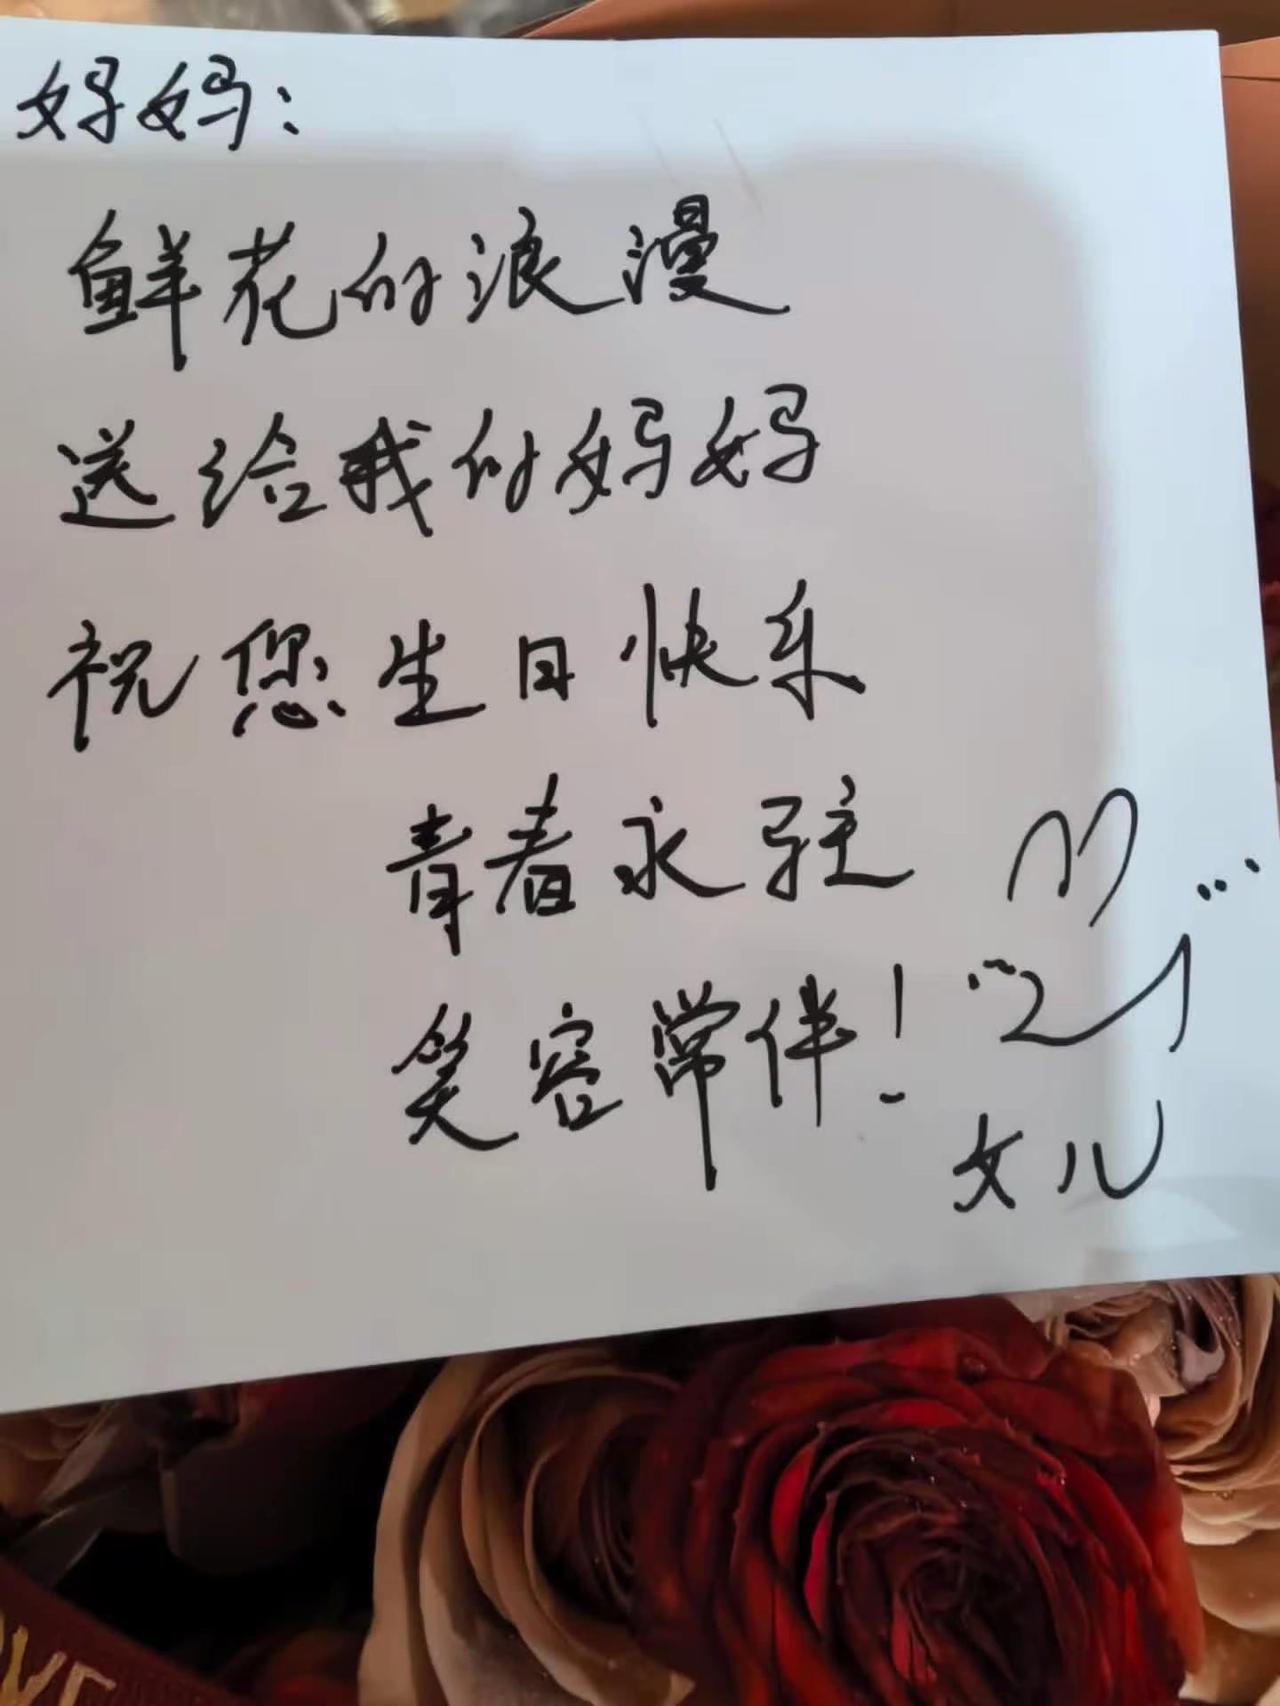 妈妈:
鲜花的浪漫
送给我的妈妈
祝您生日快乐
青春永驻
笑容常伴!
女儿